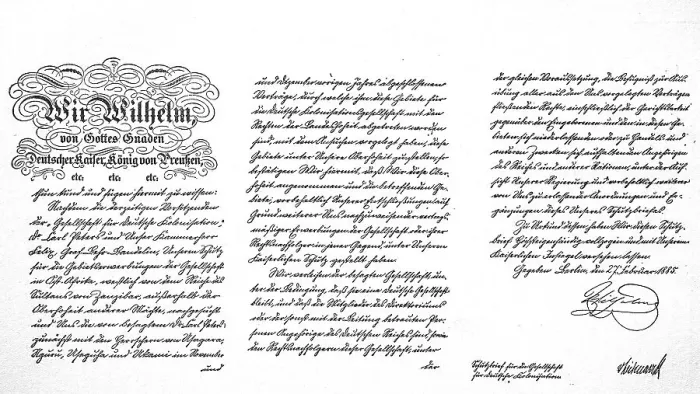 Wir Wilhelm,
von Gottes Gnaden
Deutscher Kaiser, König von Preußen,
etc. etc. etc.
thun kund und fügen hiermit zu wissen:
Nachdem die derzeitigen Vorsitzenden
der „Gesellschaft für deutsche Kolonisation“
Dr. Carl Peters und Unser Kammerherr
Felix, Graf Behr-Bandelin, Unseren Schutz
für die Gebietserwerbungen der Gesellschaft
in Ost-Afrika, westlich von dem Reiche des
Sultans von Zanzibar, außerhalb der
Oberhoheit anderer Mächte, nachgesucht
und Uns die von besagtem Dr. Carl Peters
zunächst mit den Herrschern von Usagara,
Nguru, Useguha und Ukami im November
und
und Dezember vorigen Jahres abgeschlossenen
Verträge, durch welche ihm diese Gebiete für
die deutsche Kolonisationsgesellschaft mit den
Rechten der Landeshoheit abgetreten worden
sind, mit dem Ansuchen vorgelegt haben, diese
Gebiete unter Unsere Oberhoheit zu stellen, so
bestätigen Wir hiermit, daß Wir diese Ober-
hoheit angenommen und die betreffenden Ge-
biete, vorbehaltlich Unserer Entschließungen auf
Grund weiterer Uns nachzuweisender vertrags-
mäßiger Erwerbungen der Gesellschaft oder ihrer
Rechtsnachfolger in jener Gegend, unter Unseren
Kaiserlichen Schutz gestellt haben.
Wir verleihen der besagten Gesellschaft, un-
ter der Bedingung, daß sie eine deutsche Gesellschaft
bleibt, und daß die Mitglieder des Direktoriums
oder der sonst mit der Leitung betrauten Per-
sonen Angehörige des deutschen Reichs sind, sowie
den Rechtsnachfolgern dieser Gesellschaft, unter
der
der gleichen Voraussetzung, die Befugniß zur Aus-
übung aller aus den Uns vorgelegten Verträgen
fließenden Rechte, einschließlich der Gerichtsbarkeit
gegenüber den Eingeborenen und den in diesen Ge-
bieten sich niederlassenden oder zu Handels- und
anderen Zwecken sich aufhaltenden Angehörigen
des Reichs und anderer Nationen, unter der Auf-
sicht Unserer Regierung und vorbehaltlich weiterer
von Uns zu erlassender Anordnungen und Er-
gänzungen dieses Unseres Schutzbriefes.
Zu Urkund dessen haben Wir diesen Schutz-
brief Höchsteigenhändig vollzogen und mit Unserem
Kaiserlichen Insiegel versehen lassen.
Gegeben Berlin, den 27. Februar 1885.
Wilhelm
Schutzbrief für die Gesellschaft
für deutsche Kolonisation
v. Bismarck